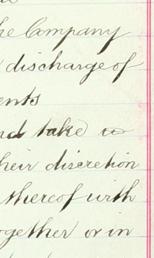 he Company
discharge of
ents
nd take
heir discretion
thereof with
ogether or in